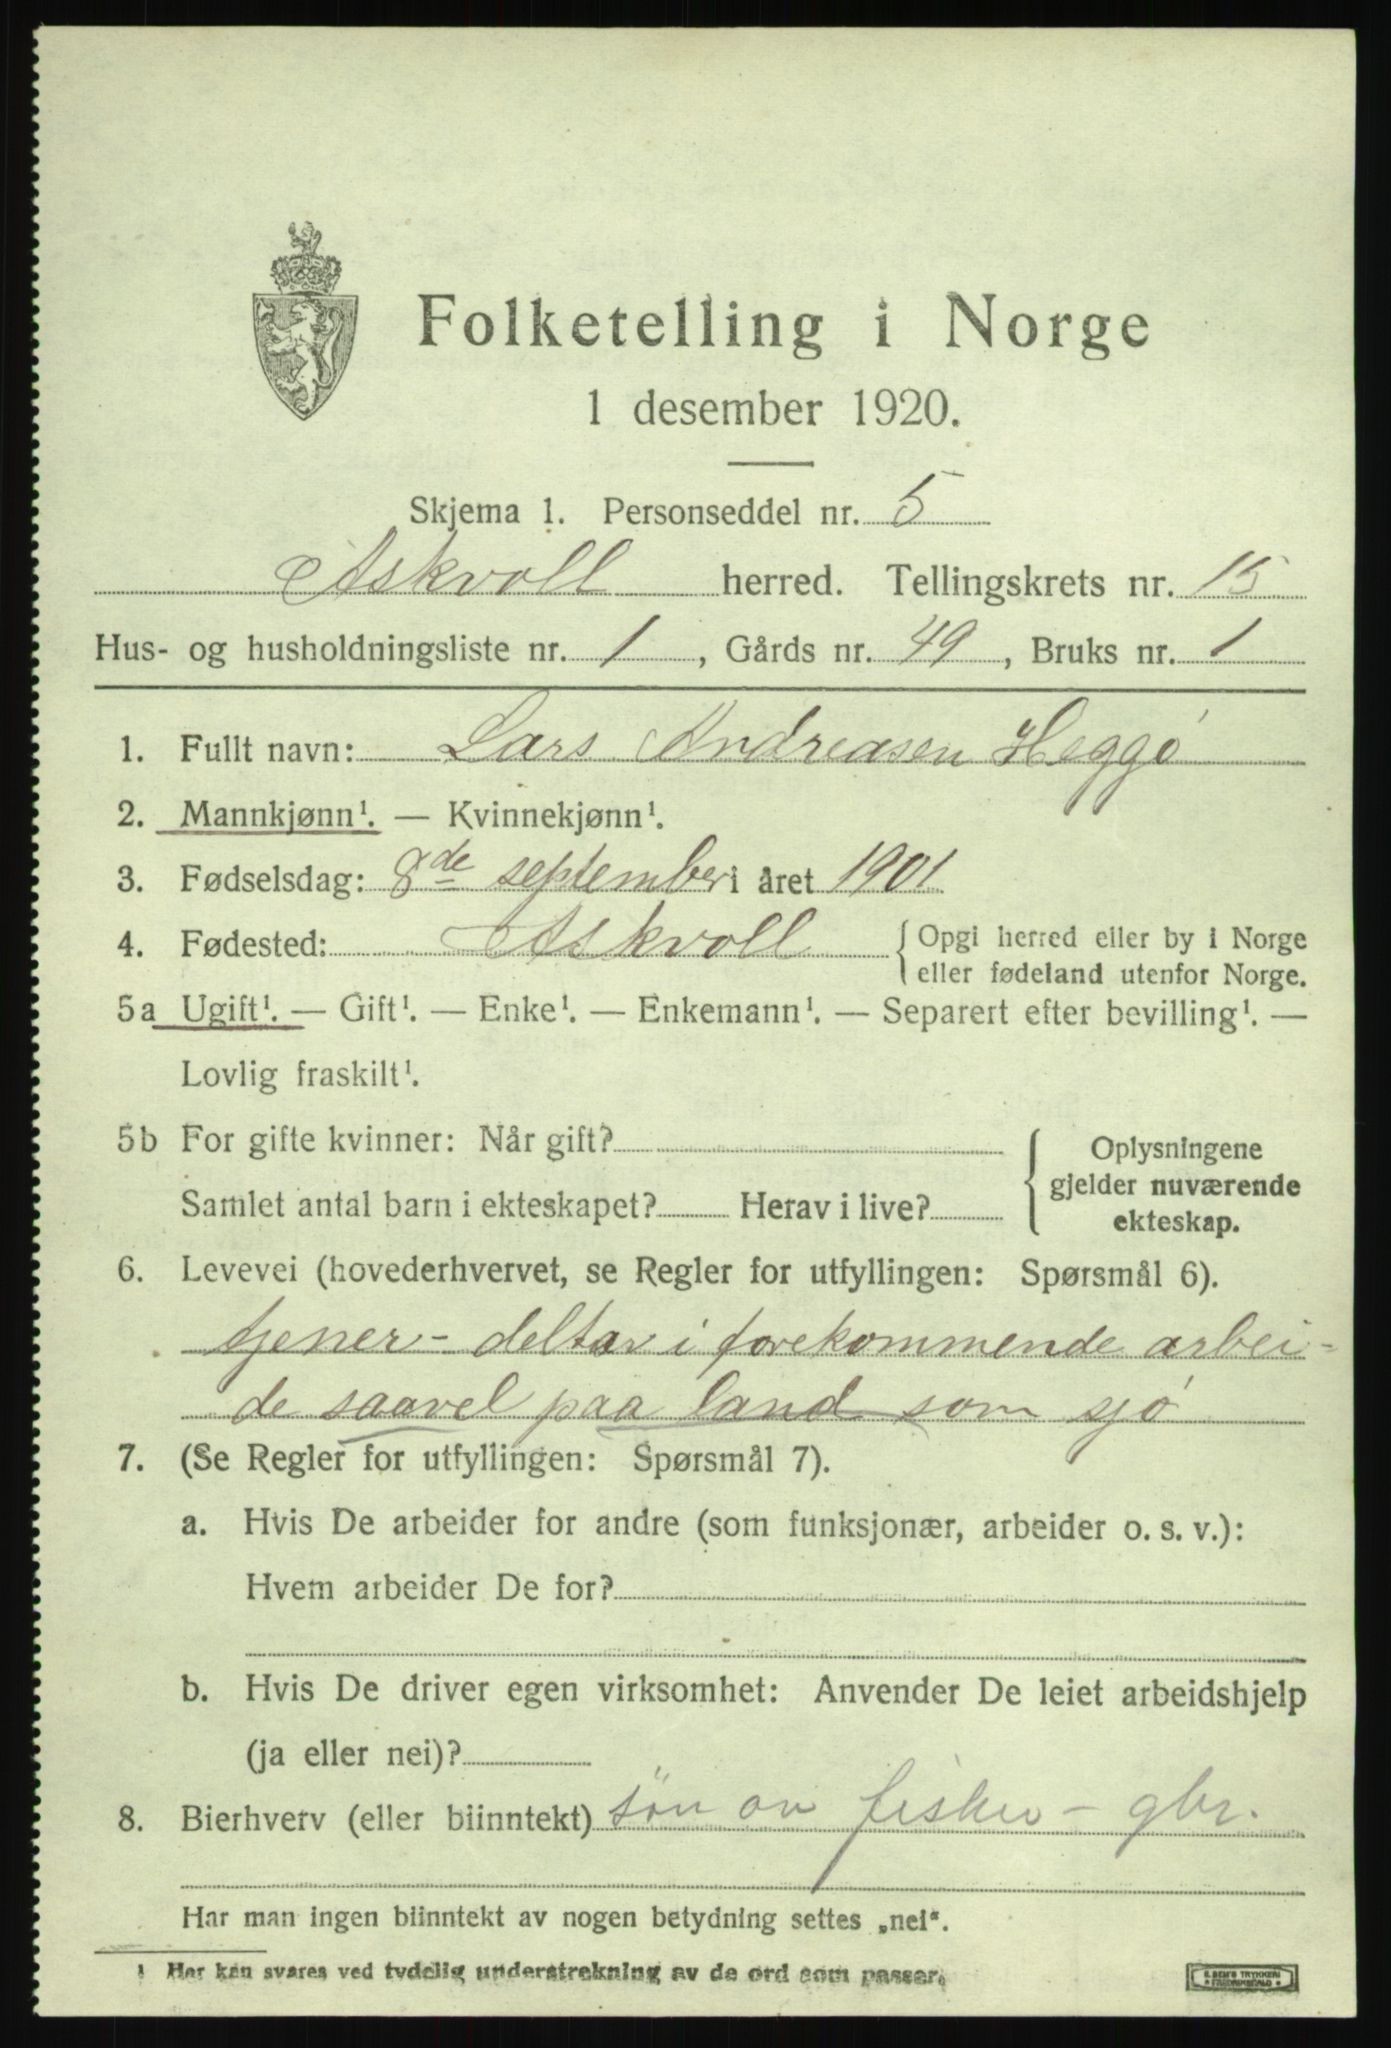 Folketelling i Norge
1 desember 1920.
Skjema 1. Personseddel nr. 5
Askvoll herred. Tellingskrets nr. 15
Hus- og husholdningsliste nr. 1, Gårds nr. 49, Bruks nr. 1
1. Fullt navn: Lars Andreasen Heggø
2. Mannkjønn¹. — Kvinnekjønn¹.
3. Fødselsdag: 8de september i året 1901
4. Fødested: Askvoll {Opgi herred eller by i Norge
eller fødeland utenfor Norge.
5a Ugift¹. — Gift¹. — Enke¹. — Enkemann¹. — Separert efter bevilling¹. —
Lovlig fraskilt¹.
5b For gifte kvinner: Når gift?
Samlet antal barn i ekteskapet? Herav i live?
Oplysningene
gjelder nuværende
ekteskap.
6. Levevei (hovederhvervet, se Regler for utfyllingen: Spørsmål 6).
tjener - deltar i forekommende arbei-
de saavel paa land som sjø
7. (Se Regler for utfyllingen: Spørsmål 7).
a. Hvis De arbeider for andre (som funksjonær, arbeider o. s. v.):
Hvem arbeider De for?
b. Hvis De driver egen virksomhet: Anvender De leiet arbeidshjelp
(ja eller nei)?
8. Bierhverv (eller biinntekt) søn av fisker - gbr.
Har man ingen biinntekt av nogen betydning settes „nei“.
¹ Her kan svares ved tydelig understrekning av de ord som passer.